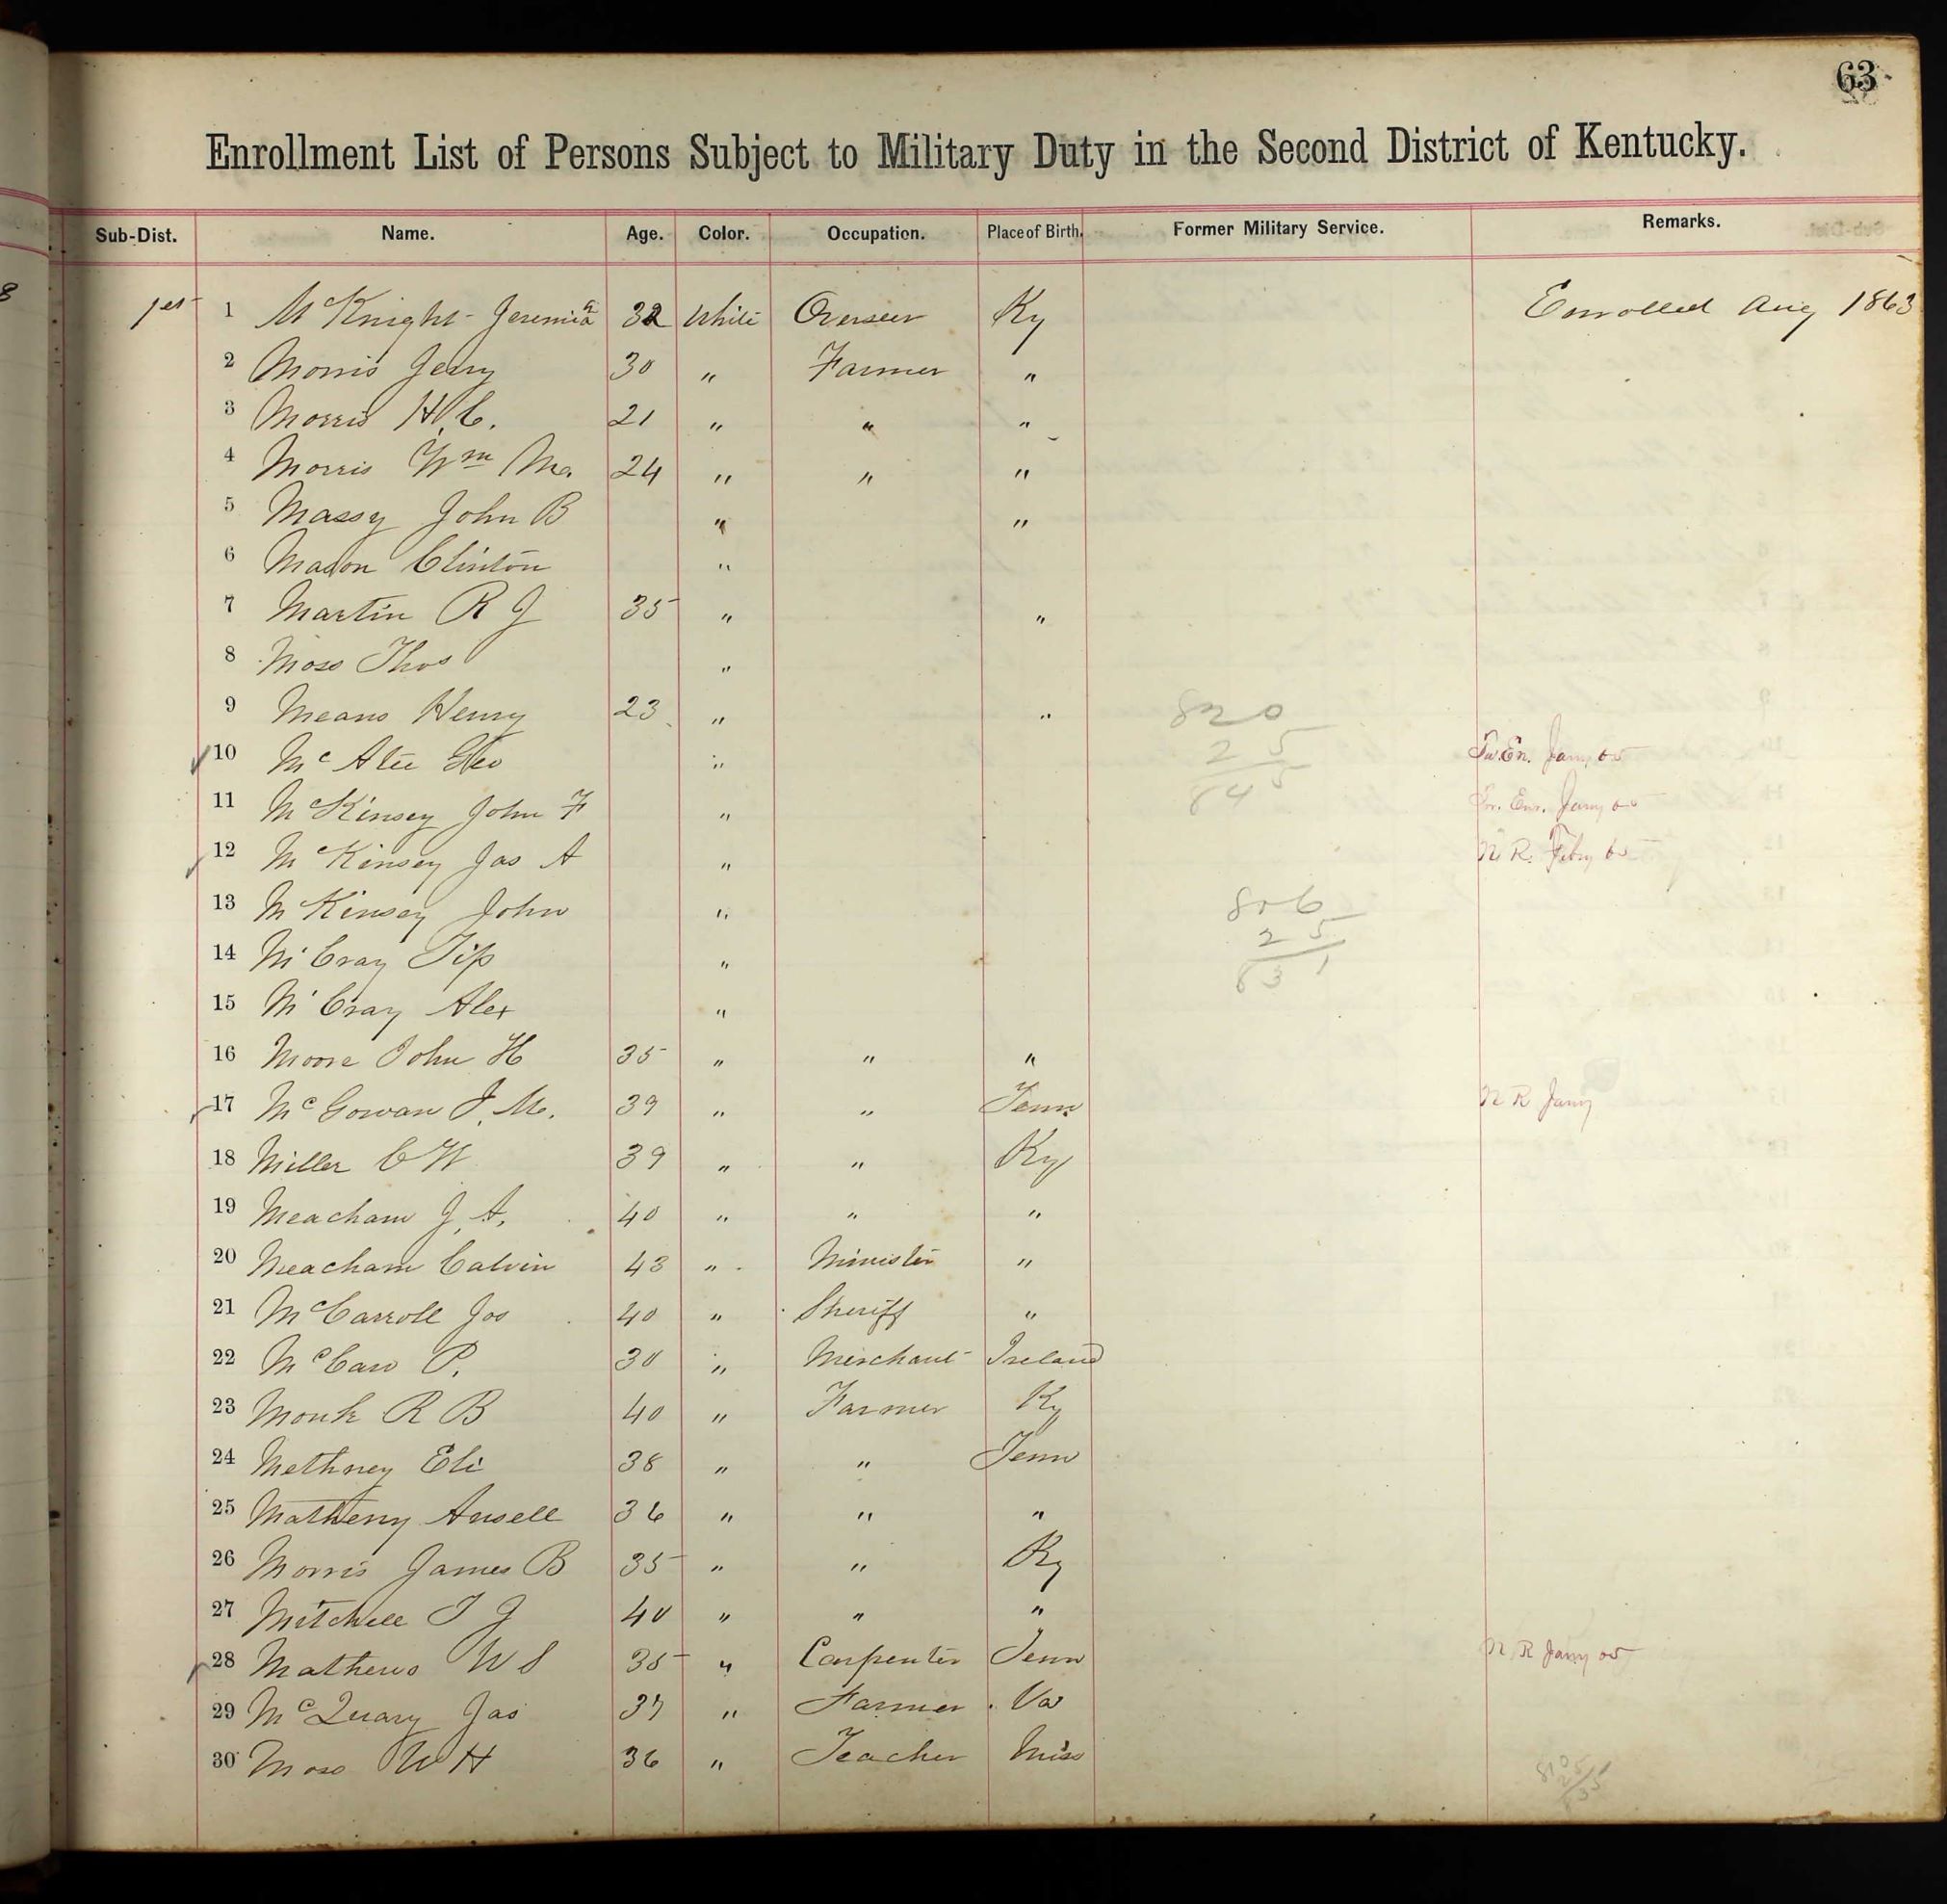 63
Enrollment List of Persons Subject to Military Duty in the Second District of Kentucky.
Sub-Dist. Name. Age. Color. Occupation. Place of Birth. Former Military Service. Remarks.
1st 1 McKnight Jeremiah 32 White Overseer Ky Enrolled Aug 1863
2 Morris Jerry 30 " Farmer "
3 Morris H. C. 21 " " "
4 Morris Wm Mc. 24 " " "
5 Massy John B " "
6 Mason Clinton "
7 Martin R J 35 " "
8 Moss Thos "
9 Means Henry 23 " " 820
10 McAtee Geo " 25 En. Jany 65
11 McKinsey John F " 845 Enr. Jany 65
12 McKinsey Jas A " N R. Feby 65
13 McKinsey John " 806
14 McCray Tip " 25
15 McCray Alex " 831
16 Moore John H 35 " " "
17 McGowan J. M. 39 " " Tenn N R Jany
18 Miller C W 39 " " Ky
19 Meacham J. A. 40 " " "
20 Meacham Calvin 43 " Minister "
21 McCarroll Jos 40 " Sheriff "
22 McCaw P. 30 " Merchant Ireland
23 Monk R B 40 " Farmer Ky
24 Methney Eli 38 " " Tenn
25 Matheny Ansell 36 " " "
26 Morris James B 35 " " Ky
27 Mitchell T J 40 " " "
28 Mathews W S 35 " Carpenter Tenn N R Jany 65
29 McQuary Jas 37 " Farmer Va
30 Moss W H 36 " Teacher Miss